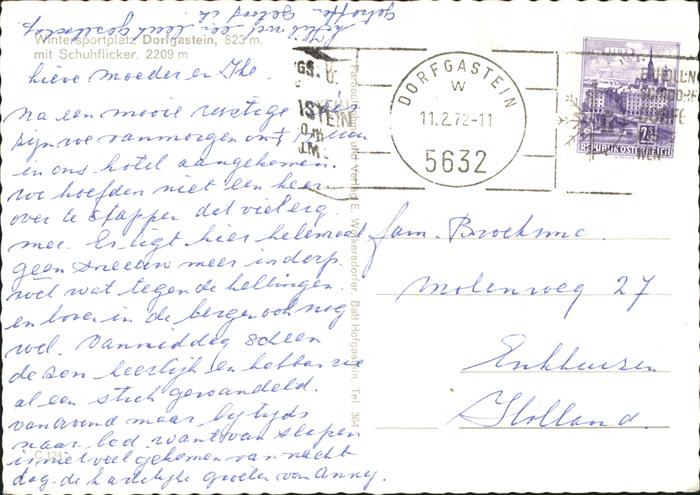 Wintersportplatz Dorfgastein, 823 m,
mit Schuhflicker, 2209 m
Lieve Moeder en
na een mooie rustige reis
zijn we vanmorgen om
in ons hotel aangekomen.
we hoefden niet een keer
over te stappen dat viel erg
mee. Er ligt hier helemaal
geen sneeuw meer in dorp.
wel wat tegen de hellingen.
en boven in de bergen ook nog
wel. Vanmiddag scheen
de zon heerlijk en hebben we
al een stuk gewandeld.
vanavond maar bytyds
naar bed. want van slapen
is niet veel gekomen vannacht
dag. de hartelijke groeten van Anny.
C 124
Verlag E. Wolkersdorfer, Bad Hofgastein, Tel. 364
DORFGASTEIN
w
11.2.72-11
5632
REPUBLIK ÖSTERREICH
fam. Broeksma
Molenweg 27
Enkhuizen
Holland.